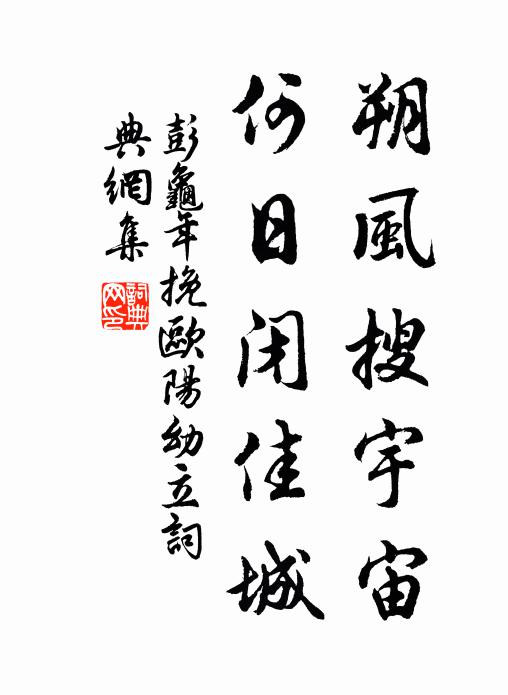 朔風搜宇宙
何日闭佳城
彭龜年挽歐陽幼立詞
典網集
詞典网印